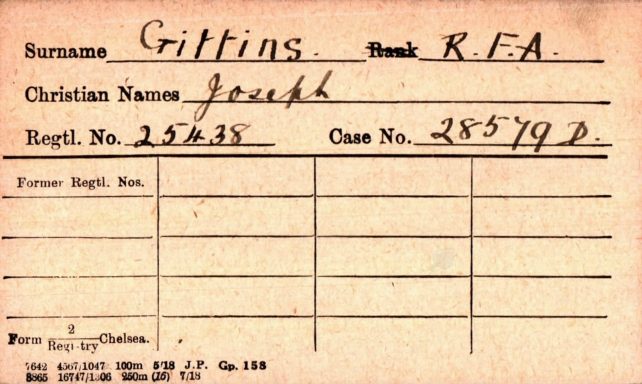 Surname Gittins. Rank R.F.A.
Christian Names Joseph
Regtl. No. 25438 Case No. 28579 D.
Former Regtl. Nos.
Form 2/Registry Chelsea.
7642 4567/1047 100m 5/18 J.P. Gp. 158
8865 16747/1306 250m (15) 7/18